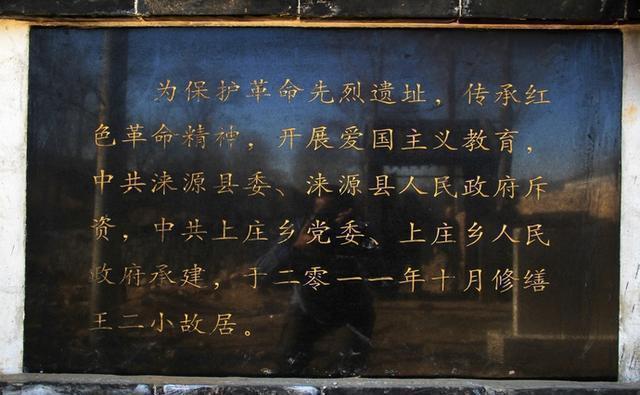 为保护革命先烈遗址，传承红
色革命精神，开展爱国主义教育，
中共涞源县委、涞源县人民政府斥
资，中共上庄乡党委、上庄乡人民
政府承建，于二零一一年十月修缮
王二小故居。